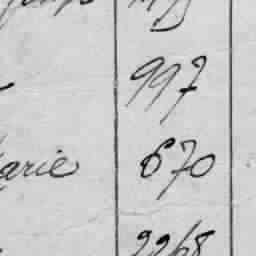 997
arie 670
2268